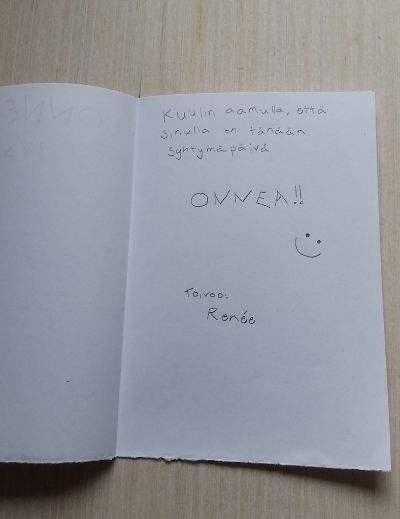 Kuulin aamulla, että
sinulla on tänään
syntymäpäivä
ONNEA!!
Toivoo:
Renée